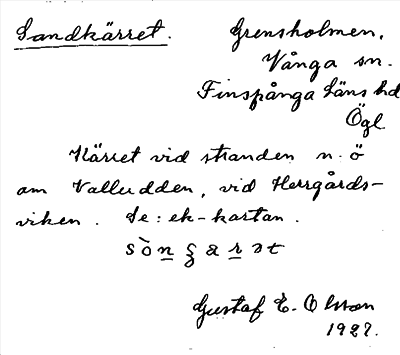 Sandkärret.
Grensholmen,
Vånga sn.
Finspånga läns hd
Ögl
Kärret vid stranden n. ö
om Valludden, vid Herrgårds-
viken. Se: ek-kartan.
Gustaf E. Olsson
1927.